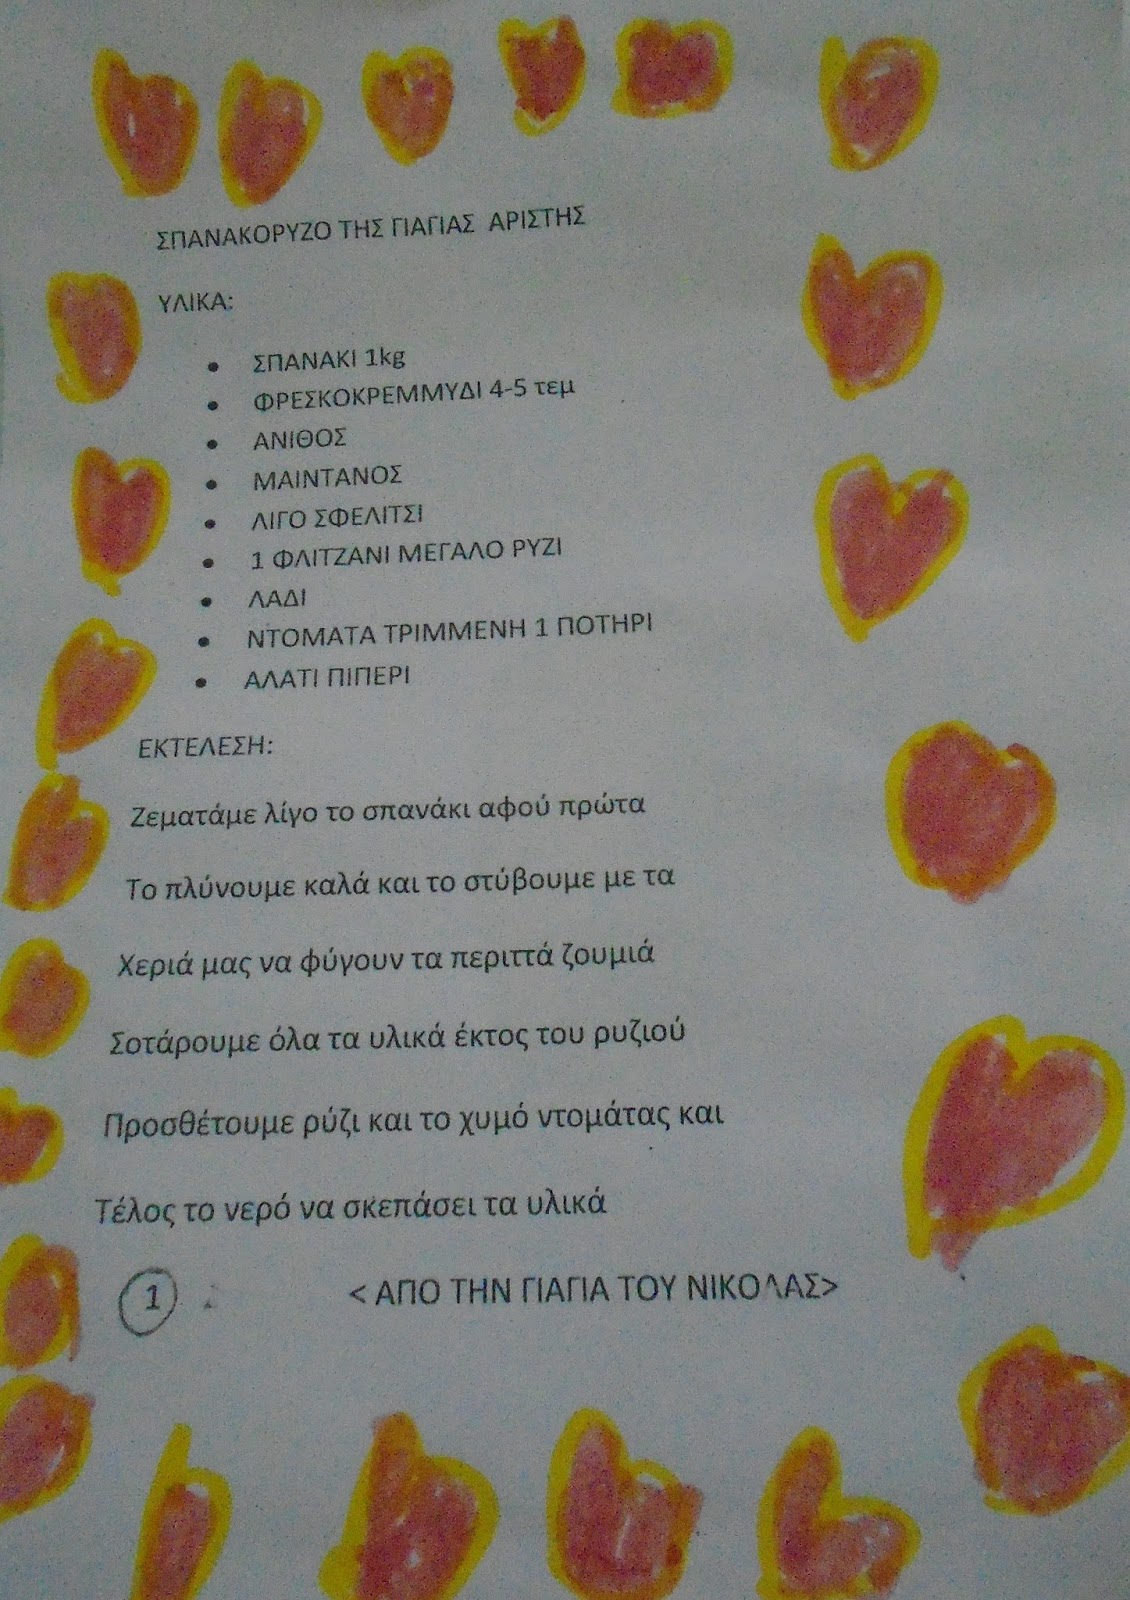 ΣΠΑΝΑΚΟΡΥΖΟ ΤΗΣ ΓΙΑΓΙΑΣ ΑΡΙΣΤΗΣ
ΥΛΙΚΑ:
• ΣΠΑΝΑΚΙ 1kg
• ΦΡΕΣΚΟΚΡΕΜΜΥΔΙ 4-5 τεμ
• ΑΝΙΘΟΣ
• ΜΑΙΝΤΑΝΟΣ
• ΛΙΓΟ ΣΦΕΛΙΤΣΙ
• 1 ΦΛΙΤΖΑΝΙ ΜΕΓΑΛΟ ΡΥΖΙ
• ΛΑΔΙ
• ΝΤΟΜΑΤΑ ΤΡΙΜΜΕΝΗ 1 ΠΟΤΗΡΙ
• ΑΛΑΤΙ ΠΙΠΕΡΙ
ΕΚΤΕΛΕΣΗ:
Ζεματάμε λίγο το σπανάκι αφού πρώτα
Το πλύνουμε καλά και το στύβουμε με τα
Χεριά μας να φύγουν τα περιττά ζουμιά
Σοτάρουμε όλα τα υλικά έκτος του ρυζιού
Προσθέτουμε ρύζι και το χυμό ντομάτας και
Τέλος το νερό να σκεπάσει τα υλικά
1 < ΑΠΟ ΤΗΝ ΓΙΑΓΙΑ ΤΟΥ ΝΙΚΟΛΑΣ>